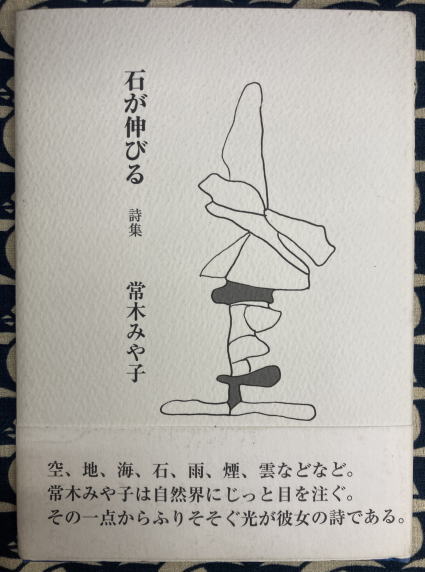 石が伸びる
詩集
常木みや子
空、地、海、石、雨、煙、雲などなど。
常木みや子は自然界にじっと目を注ぐ。
その一点からふりそそぐ光が彼女の詩である。